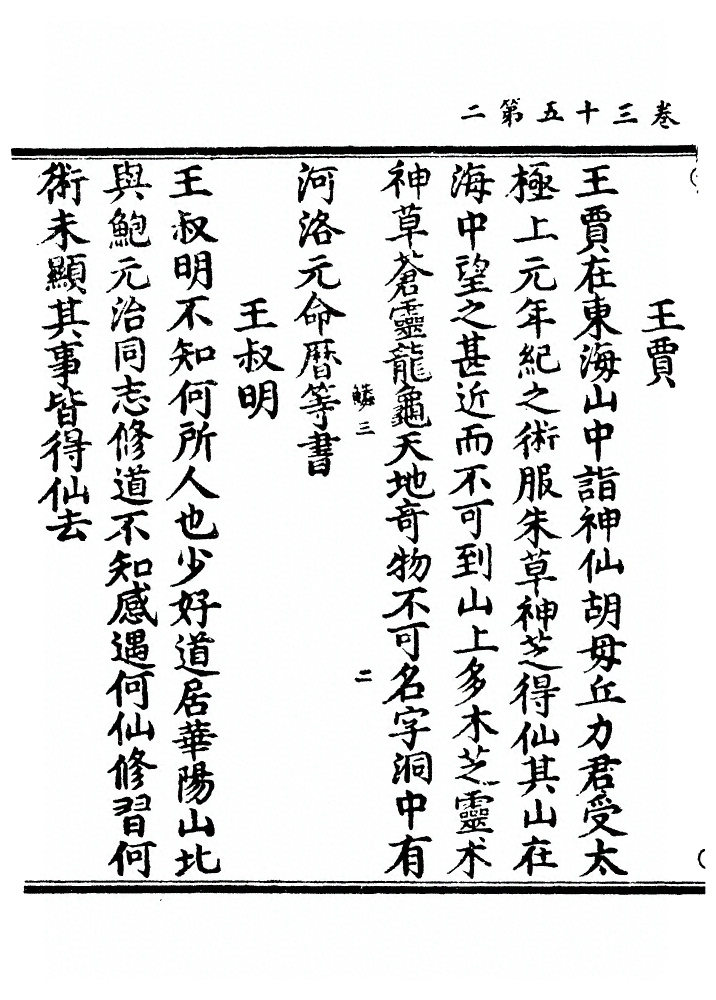 卷三十五第二
王賈
王賈在東海山中詣神仙胡毋丘力君受太
極上元年紀之術服朱草神芝得仙其山在
海中望之甚近而不可到山上多木芝靈术
神草蒼靈龍龜天地奇物不可名字洞中有
鱗三
二
河洛元命曆等書
王叔明
王叔明不知何所人也少好道居華陽山北
與鮑元治同志修道不知感遇何仙修習何
術未顯其事皆得仙去